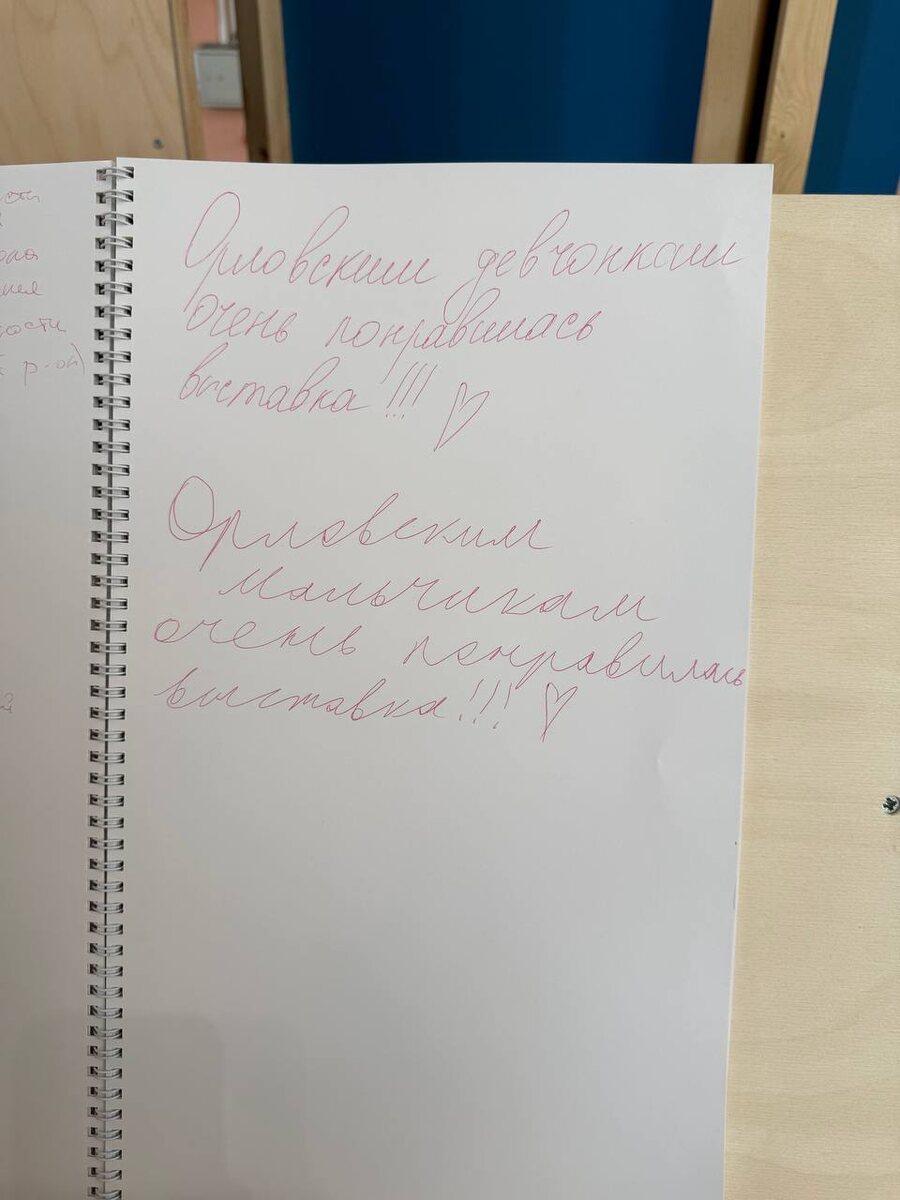 ости
р-он)
Орловским девчонкам
очень понравилась
выставка!!! ♡
Орловским
мальчикам
очень понравилась
выставка!!! ♡